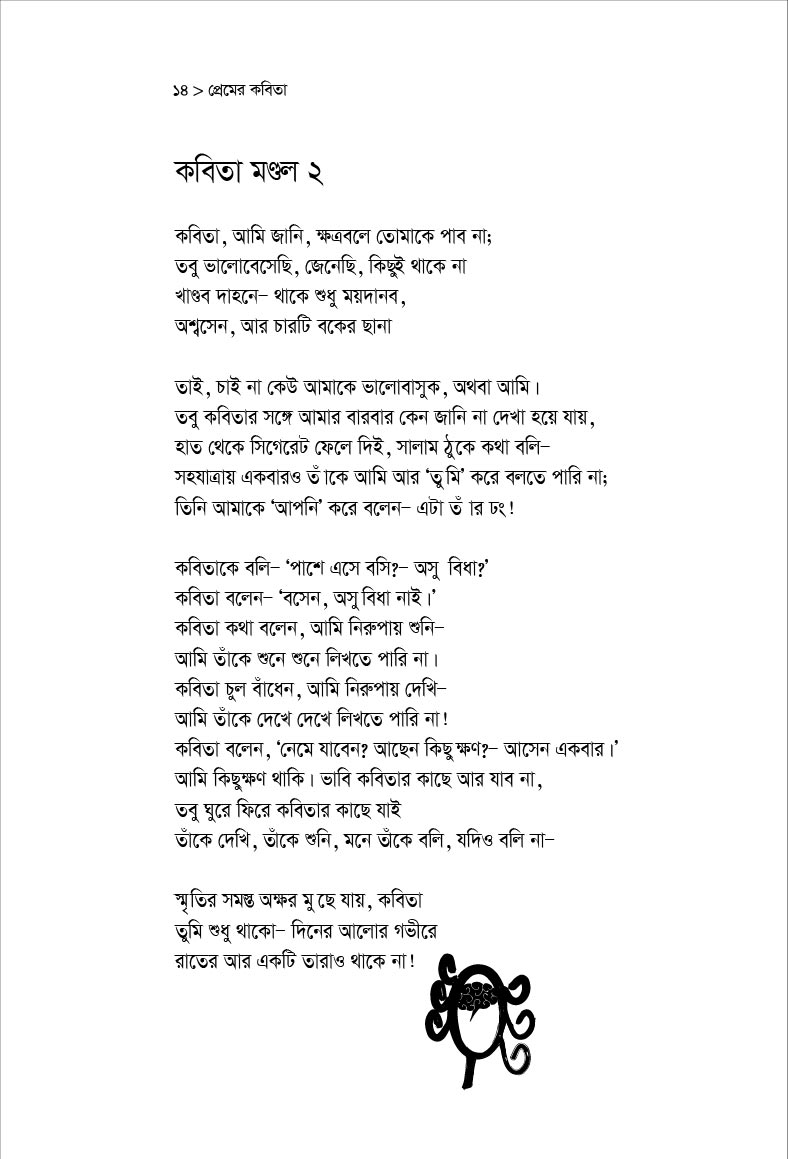 ১৪ > প্রেমের কবিতা
কবিতা মণ্ডল ২
কবিতা, আমি জানি, ক্ষত্রবলে তোমাকে পাব না;
তবু ভালোবেসেছি, জেনেছি, কিছুই থাকে না
খাণ্ডব দাহনে– থাকে শুধু ময়দানব,
অশ্বসেন, আর চারটি বকের ছানা
তাই, চাই না কেউ আমাকে ভালোবাসুক, অথবা আমি।
তবু কবিতার সঙ্গে আমার বারবার কেন জানি না দেখা হয়ে যায়,
হাত থেকে সিগেরেট ফেলে দিই, সালাম ঠুকে কথা বলি–
সহযাত্রায় একবারও তাঁকে আমি আর ‘তুমি’ করে বলতে পারি না;
তিনি আমাকে ‘আপনি’ করে বলেন– এটা তাঁর ঢং!
কবিতাকে বলি– ‘পাশে এসে বসি?– অসুবিধা?’
কবিতা বলেন– ‘বসেন, অসুবিধা নাই।’
কবিতা কথা বলেন, আমি নিরুপায় শুনি–
আমি তাঁকে শুনে শুনে লিখতে পারি না।
কবিতা চুল বাঁধেন, আমি নিরুপায় দেখি–
আমি তাঁকে দেখে দেখে লিখতে পারি না!
কবিতা বলেন, ‘নেমে যাবেন? আছেন কিছুক্ষণ?– আসেন একবার।’
আমি কিছুক্ষণ থাকি। ভাবি কবিতার কাছে আর যাব না,
তবু ঘুরে ফিরে কবিতার কাছে যাই
তাঁকে দেখি, তাঁকে শুনি, মনে তাঁকে বলি, যদিও বলি না–
স্মৃতির সমস্ত অক্ষর মুছে যায়, কবিতা
তুমি শুধু থাকো– দিনের আলোর গভীরে
রাতের আর একটি তারাও থাকে না!